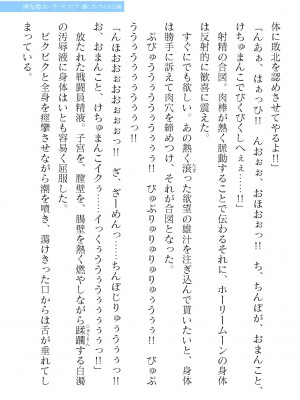 体に敗北を認めさせてやるよ!!
「んあぁ、はぁっ♡!!　んおぉぉ、おほおぉっ!!　ち、ちんぽが、おまんこと、
けちゅまんこでびくびくし〜へぇぇ……!!」
射精の合図。肉棒が熱く脈動することで伝わるそれに、ホーリームーンの身体
は反射的に歓喜に震えた。
すぐにでも欲しい。あの熱く滾った欲望の雄汁を注ぎ込んで貰いたいと、身体
は勝手に訴えて肉穴を締めつけ、それが合図となった。
ぶぴゅううううううぅぅっ!!　びゅぶりゅりゅりゅりゅぅぅぅ!!
「んほおおおおおぉぉぉっ!!　ざ、ざーめんっ……ちんぽじりゅぅうううっ!!
お、おまんこと、けちゅまんこイクぅぅ……イっくぅううぅぅううぅぅぅっ!!」
放たれた戦闘員精液。子宮を、膣壁を、腸壁を熱く燃やしながら蹂躙する白濁
の汚辱液に身体はいとも容易く屈服した。
ビクビクと全身を痙攣させながら潮を噴き、蕩けきった口からは舌が垂れてし